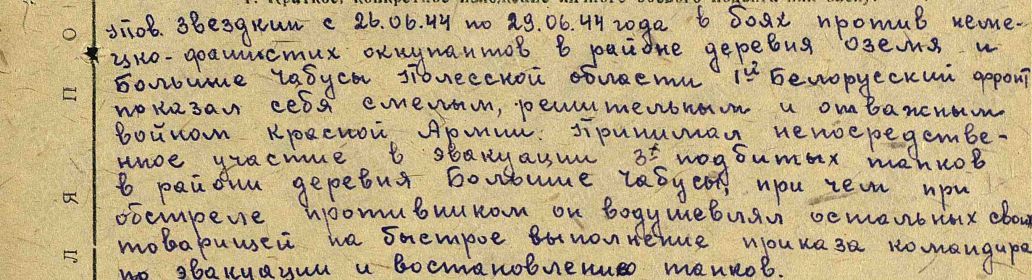 Тов. Звездкин с 26.06.44 по 29.06.44 года в боях против неме-
цко-фашистих оккупантов в районе деревня оземя и
Большие Чабусы Полесской области 1ый Белорусский фронт
показал себя смелым, решительным и отважным
войном Красной Армии. Принимал непосредстве-
нное участие в эвакуации 3х подбитых танков
в районе деревня Большие Чабусы, при чем при
обстреле противником он водушевлял остальных свои
товарищей на быстрое выполнение приказа командира
по эвакуации и востановлению танков.
П О
Л Я